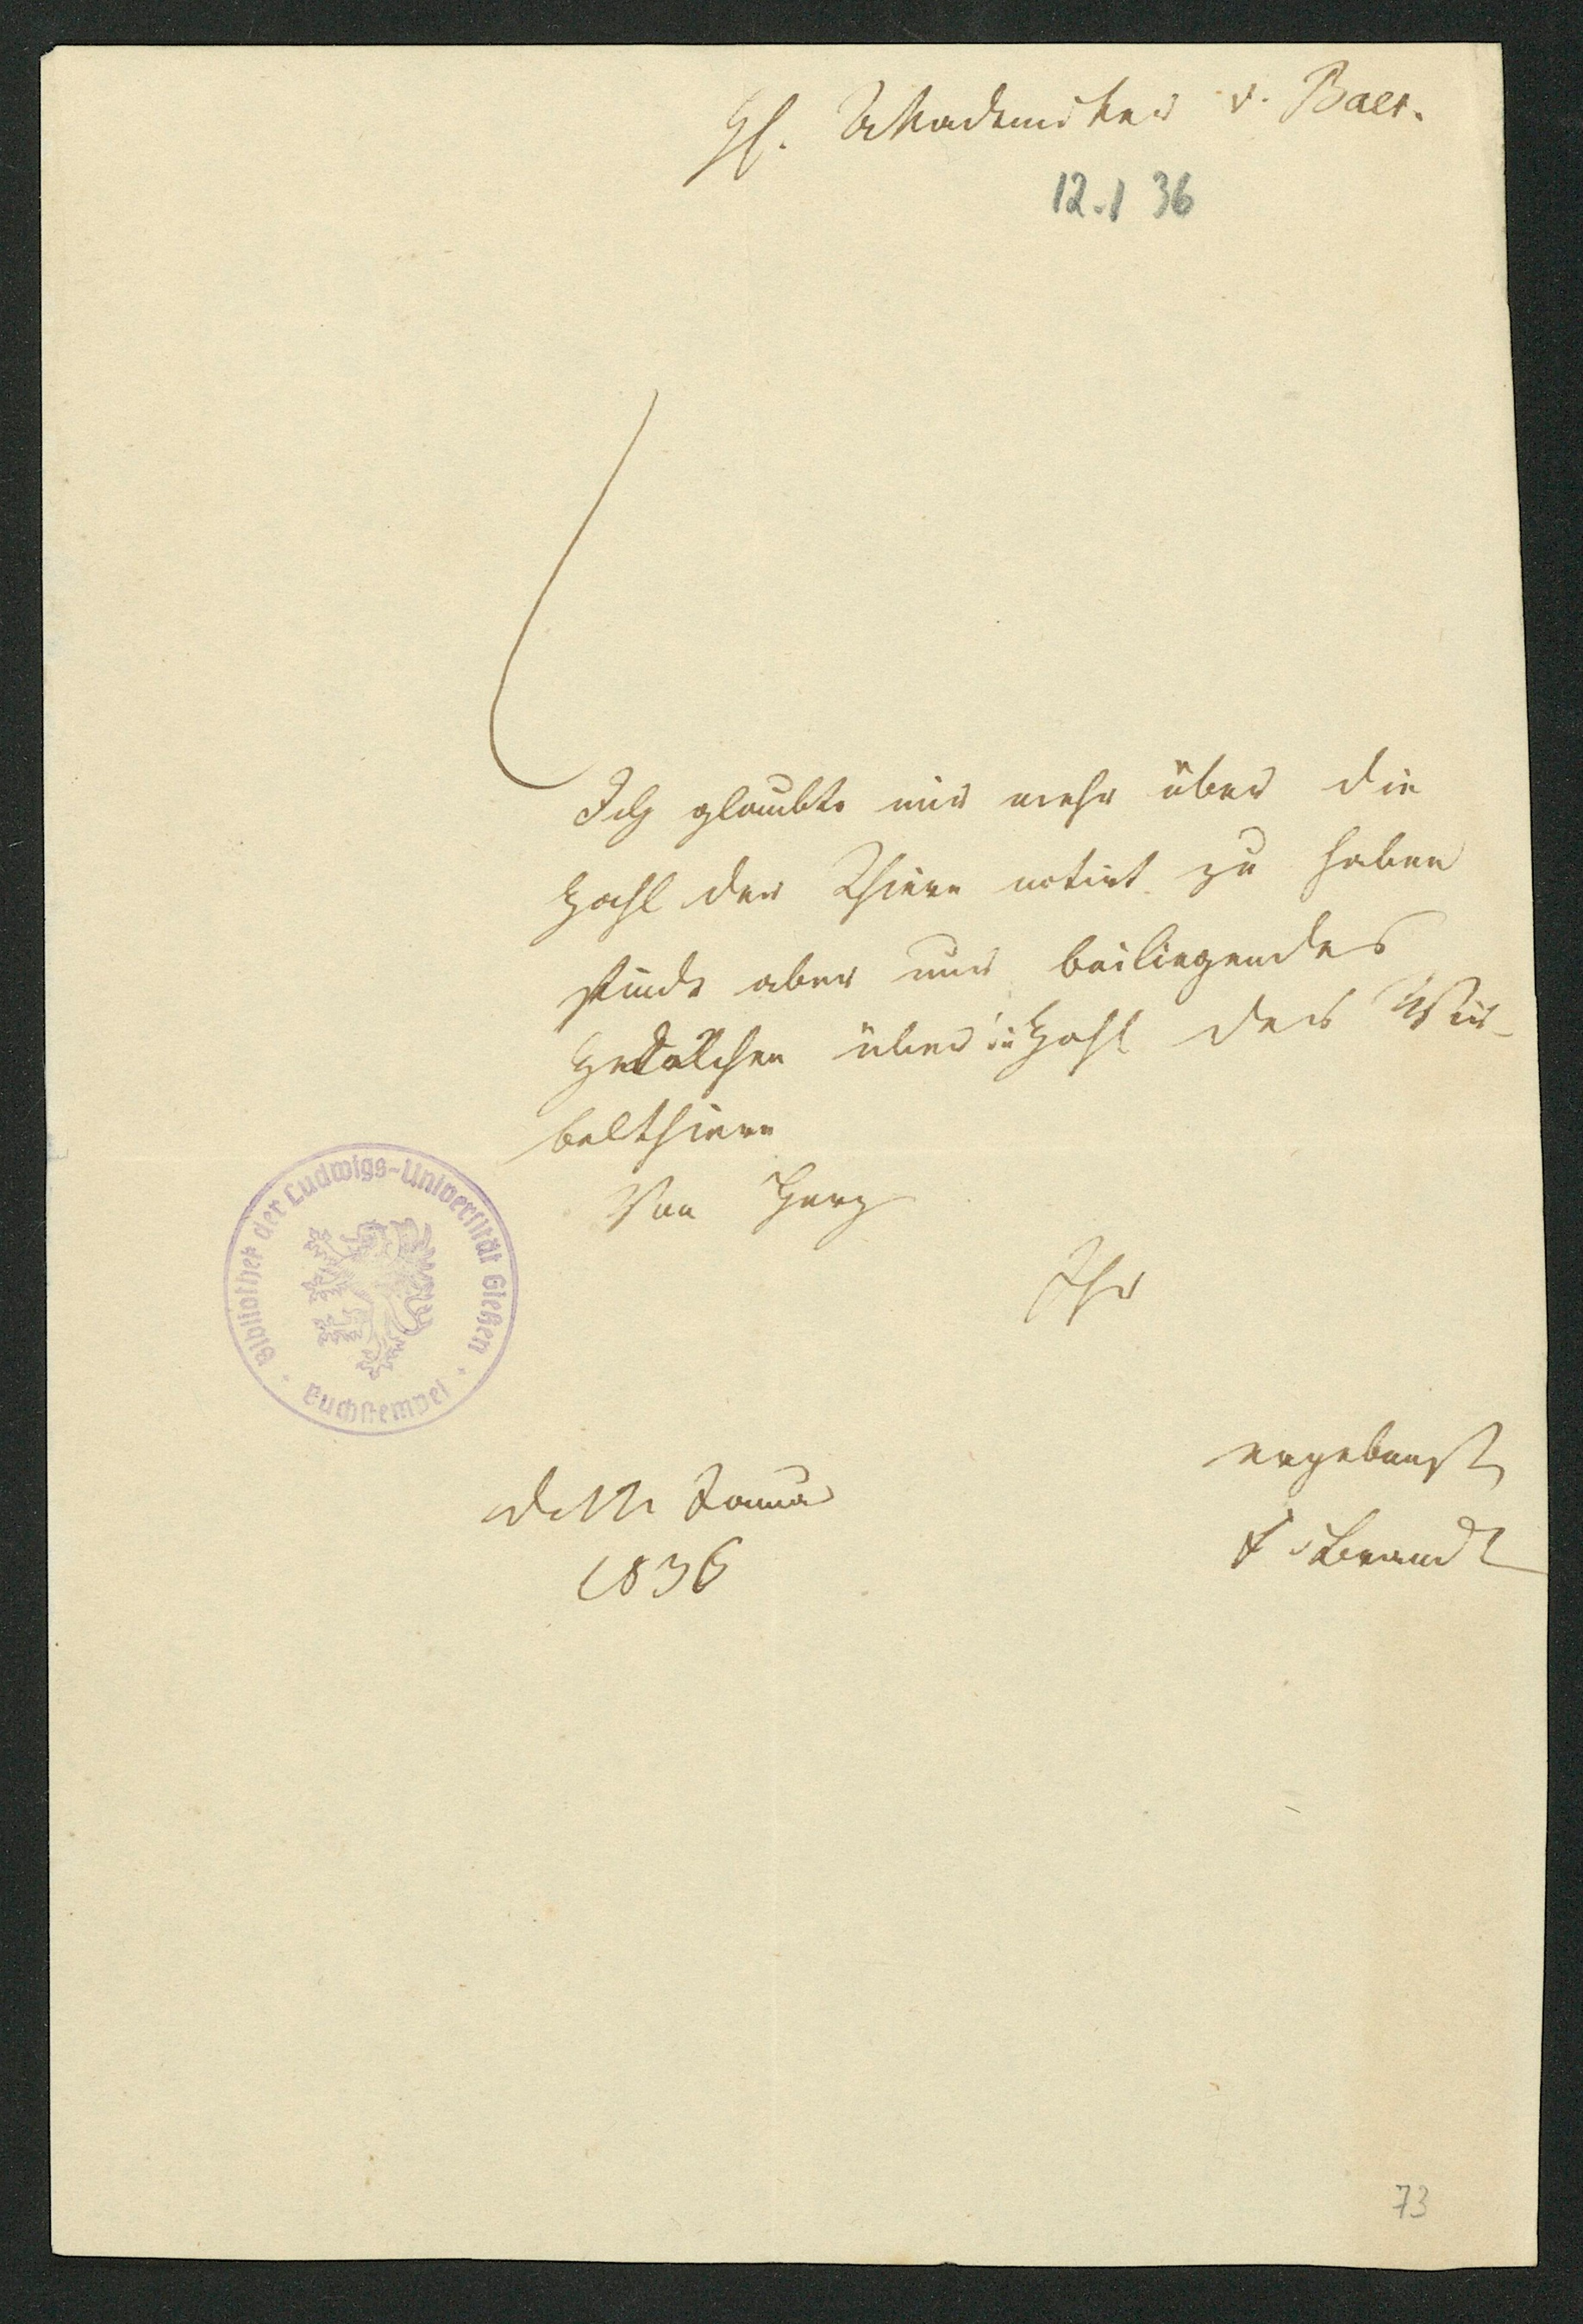 H. Akademiker v. Baer.
12.1 36
Ich glaubte mir mehr über die
Zahl der Thiere notirt zu haben
finde aber nur beiliegendes
Zettelchen über die Zahl der Wir-
belthiere
Von Herz
Ihr
ergebenst
d. 12 Januar
F. Brandt
1836
Bibliothek der Ludwigs-Universität Gießen
Buchstempel
73